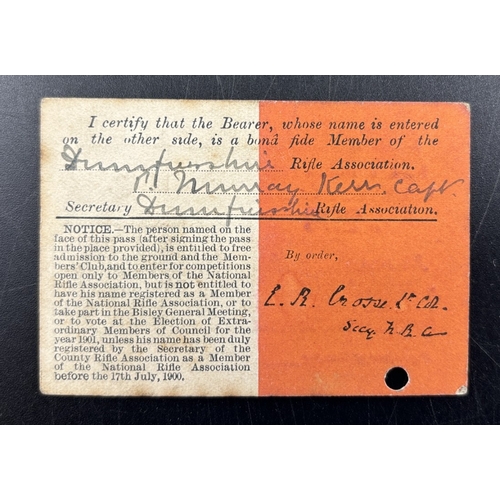 I certify that the Bearer, whose name is entered
on the other side, is a bonâ fide Member of the
Dumfriesshire Rifle Association.
Murray Kerr Capt
Secretary Dumfriesshire Rifle Association.
NOTICE.—The person named on the
face of this pass (after signing the pass
in the place provided), is entitled to free
admission to the ground and the Mem-
bers' Club, and to enter for competitions
open only to Members of the National
Rifle Association, but is not entitled to
have his name registered as a Member
of the National Rifle Association, or to
take part in the Bisley General Meeting,
or to vote at the Election of Extra-
ordinary Members of Council for the
year 1901, unless his name has been duly
registered by the Secretary of the
County Rifle Association as a Member
of the National Rifle Association
before the 17th July, 1900.
By order,
Crosse Lt Col.
Secy. N.R.A